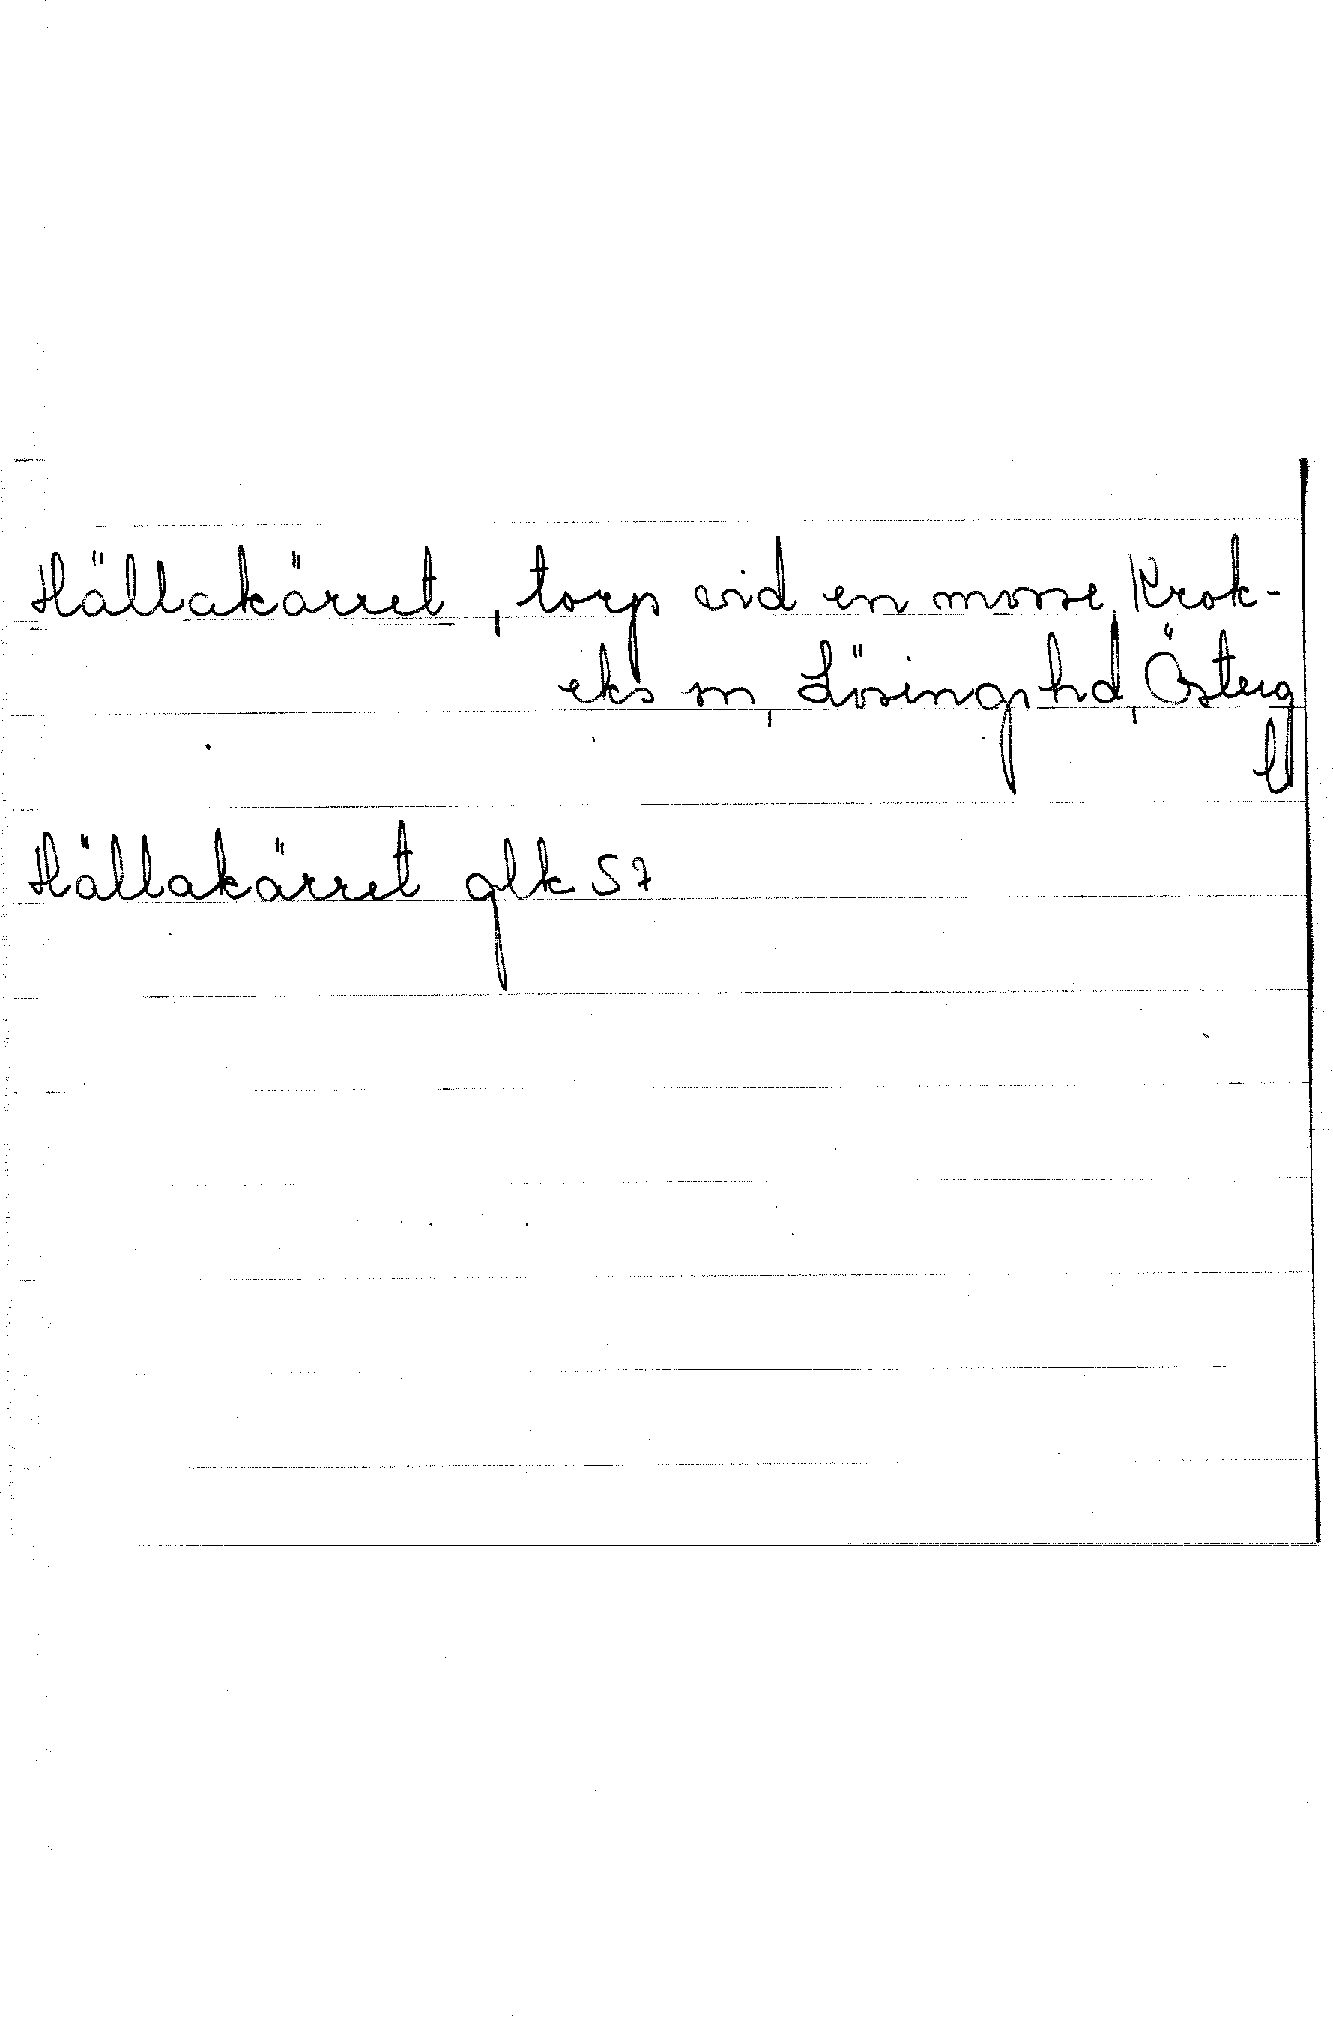 Hällakärret, torp vid en mosse, Krok-
eks sn, Lösings hd, Österg
l
Hällakärret glk 57